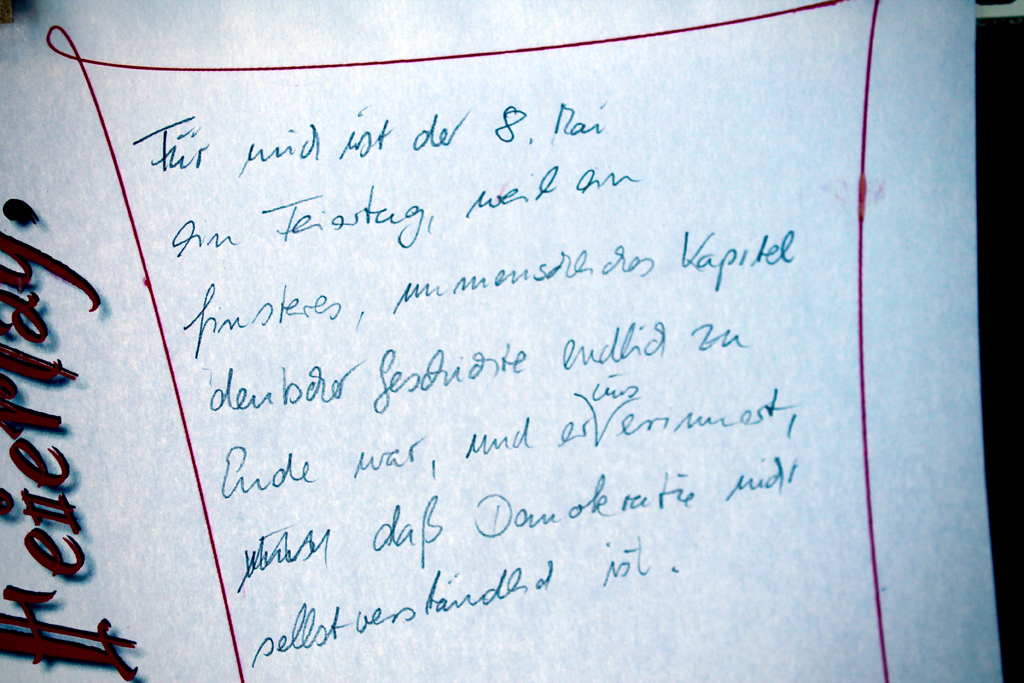 Für mich ist der 8. Mai
ein Feiertag, weil ein
finsteres, unmenschliches Kapitel
deutscher Geschichte endlich zu
Ende war, und er uns erinnert,
daß Demokratie nicht
selbstverständlich ist.